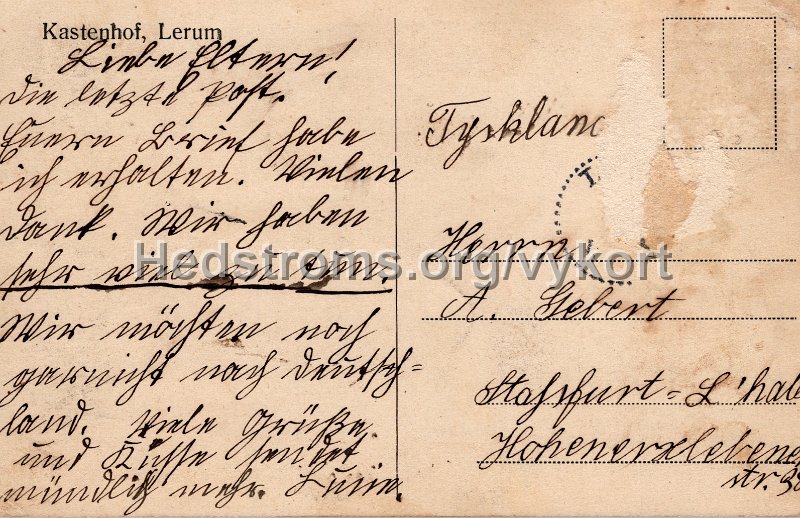 Kastenhof, Lerum
Liebe Eltern!
die letzte Post.
Euern Brief habe
ich erhalten. Vielen
Dank. Wir haben
sehr viel zu tun.
Wir möchten noch
garnicht nach Deutsch=
land. Viele Grüße
und Küsse sendet
mündlich mehr.
Tyskland
Herrn
A. Gebert
Stassfurt = L'hall
Hohenerxlebener
str. 
Hedstroms.org/vykort